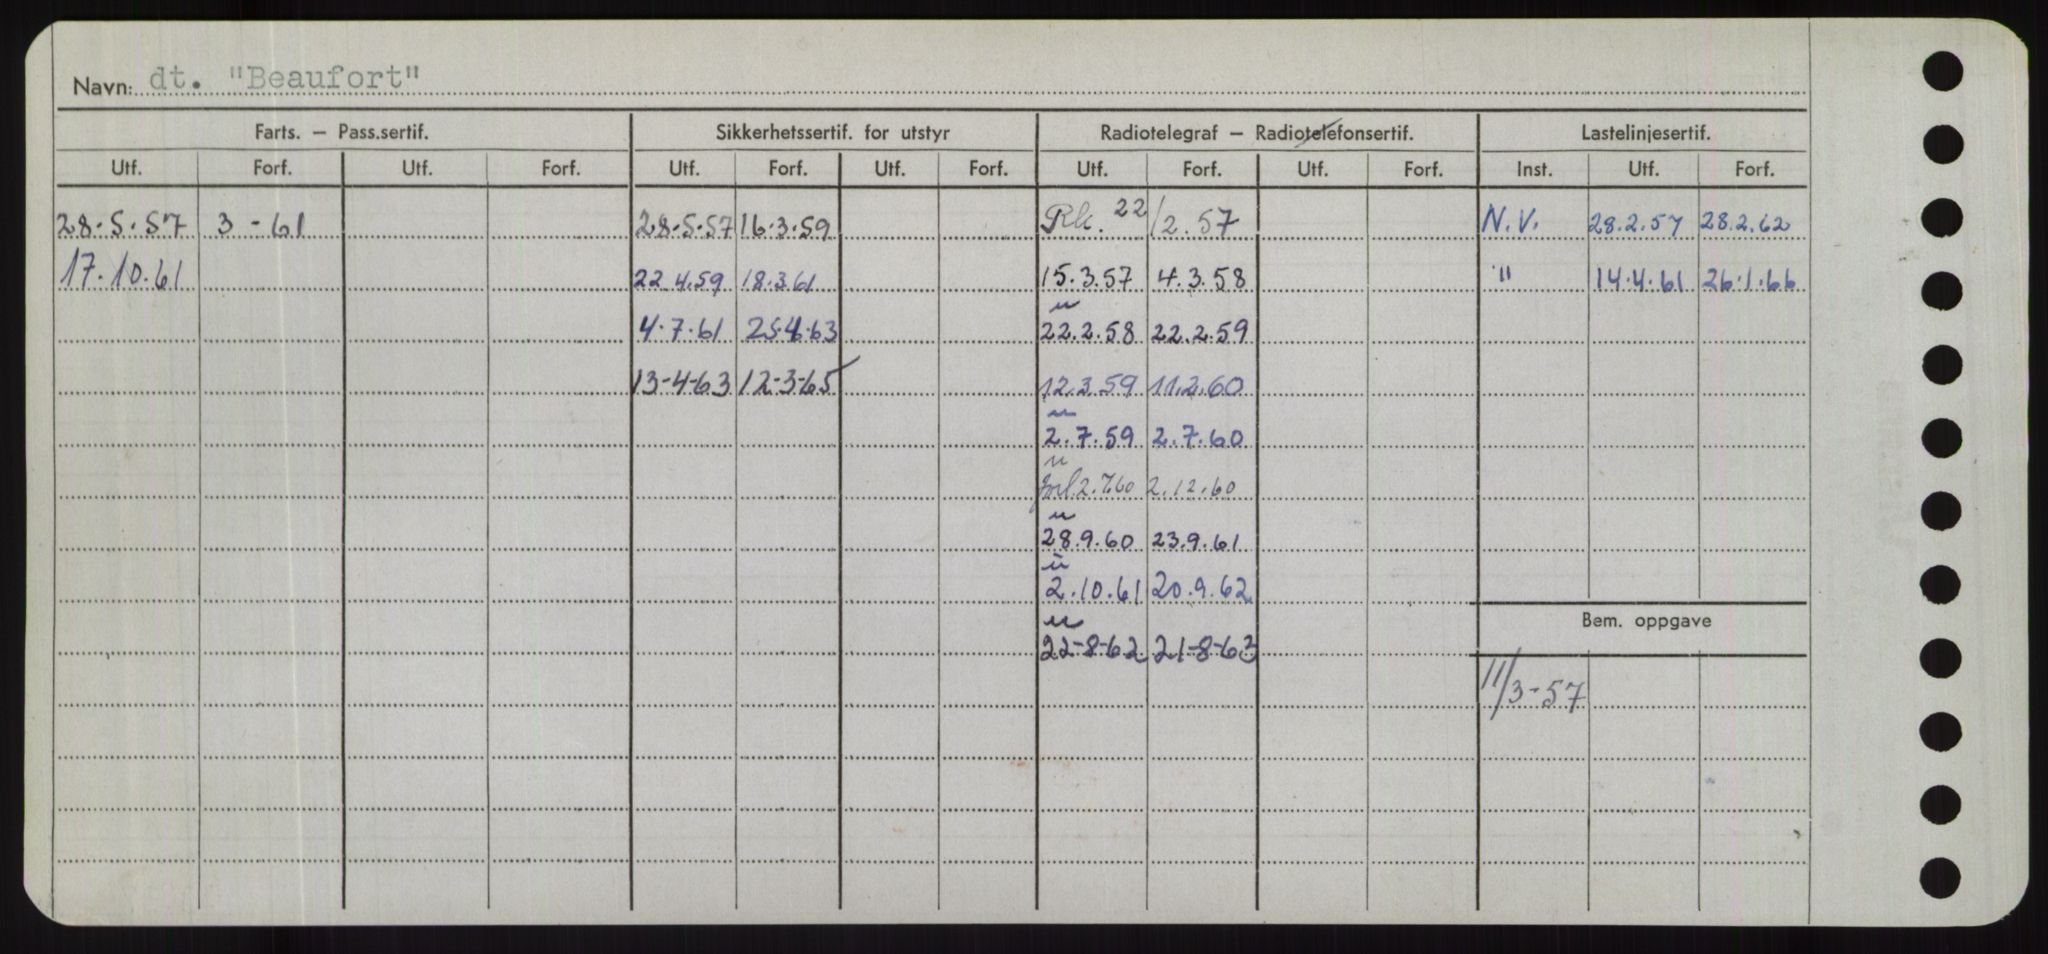 Navn: dt. "Beaufort"
Farts. — Pass.sertif. Sikkerhetssertif. for utstyr Radiotelegraf — Radiotelefonsertif. Lastelinjesertif.
Utf. Forf. Utf. Forf. Utf. Forf. Utf. Forf. Utf. Forf. Utf. Forf. Inst. Utf. Forf.
28.5.57 3 - 61 28.5.57 16.3.59 Rk. 22/2.57 N.V. 28.2.57 28.2.62
17.10.61 22.4.59 18.3.61 15.3.57 4.3.58 " 14.4.61 26.1.66
4.7.61 25.4.63 22.2.58 22.2.59
13-4-63 12-3-65 12.3.59 11.2.60
2.7.59 2.7.60
forl. 2.7.60 2.12.60
28.9.60 23.9.61
2.10.61 20.9.62
Bem. oppgave
22-8-62 21-8-63
11/3-57